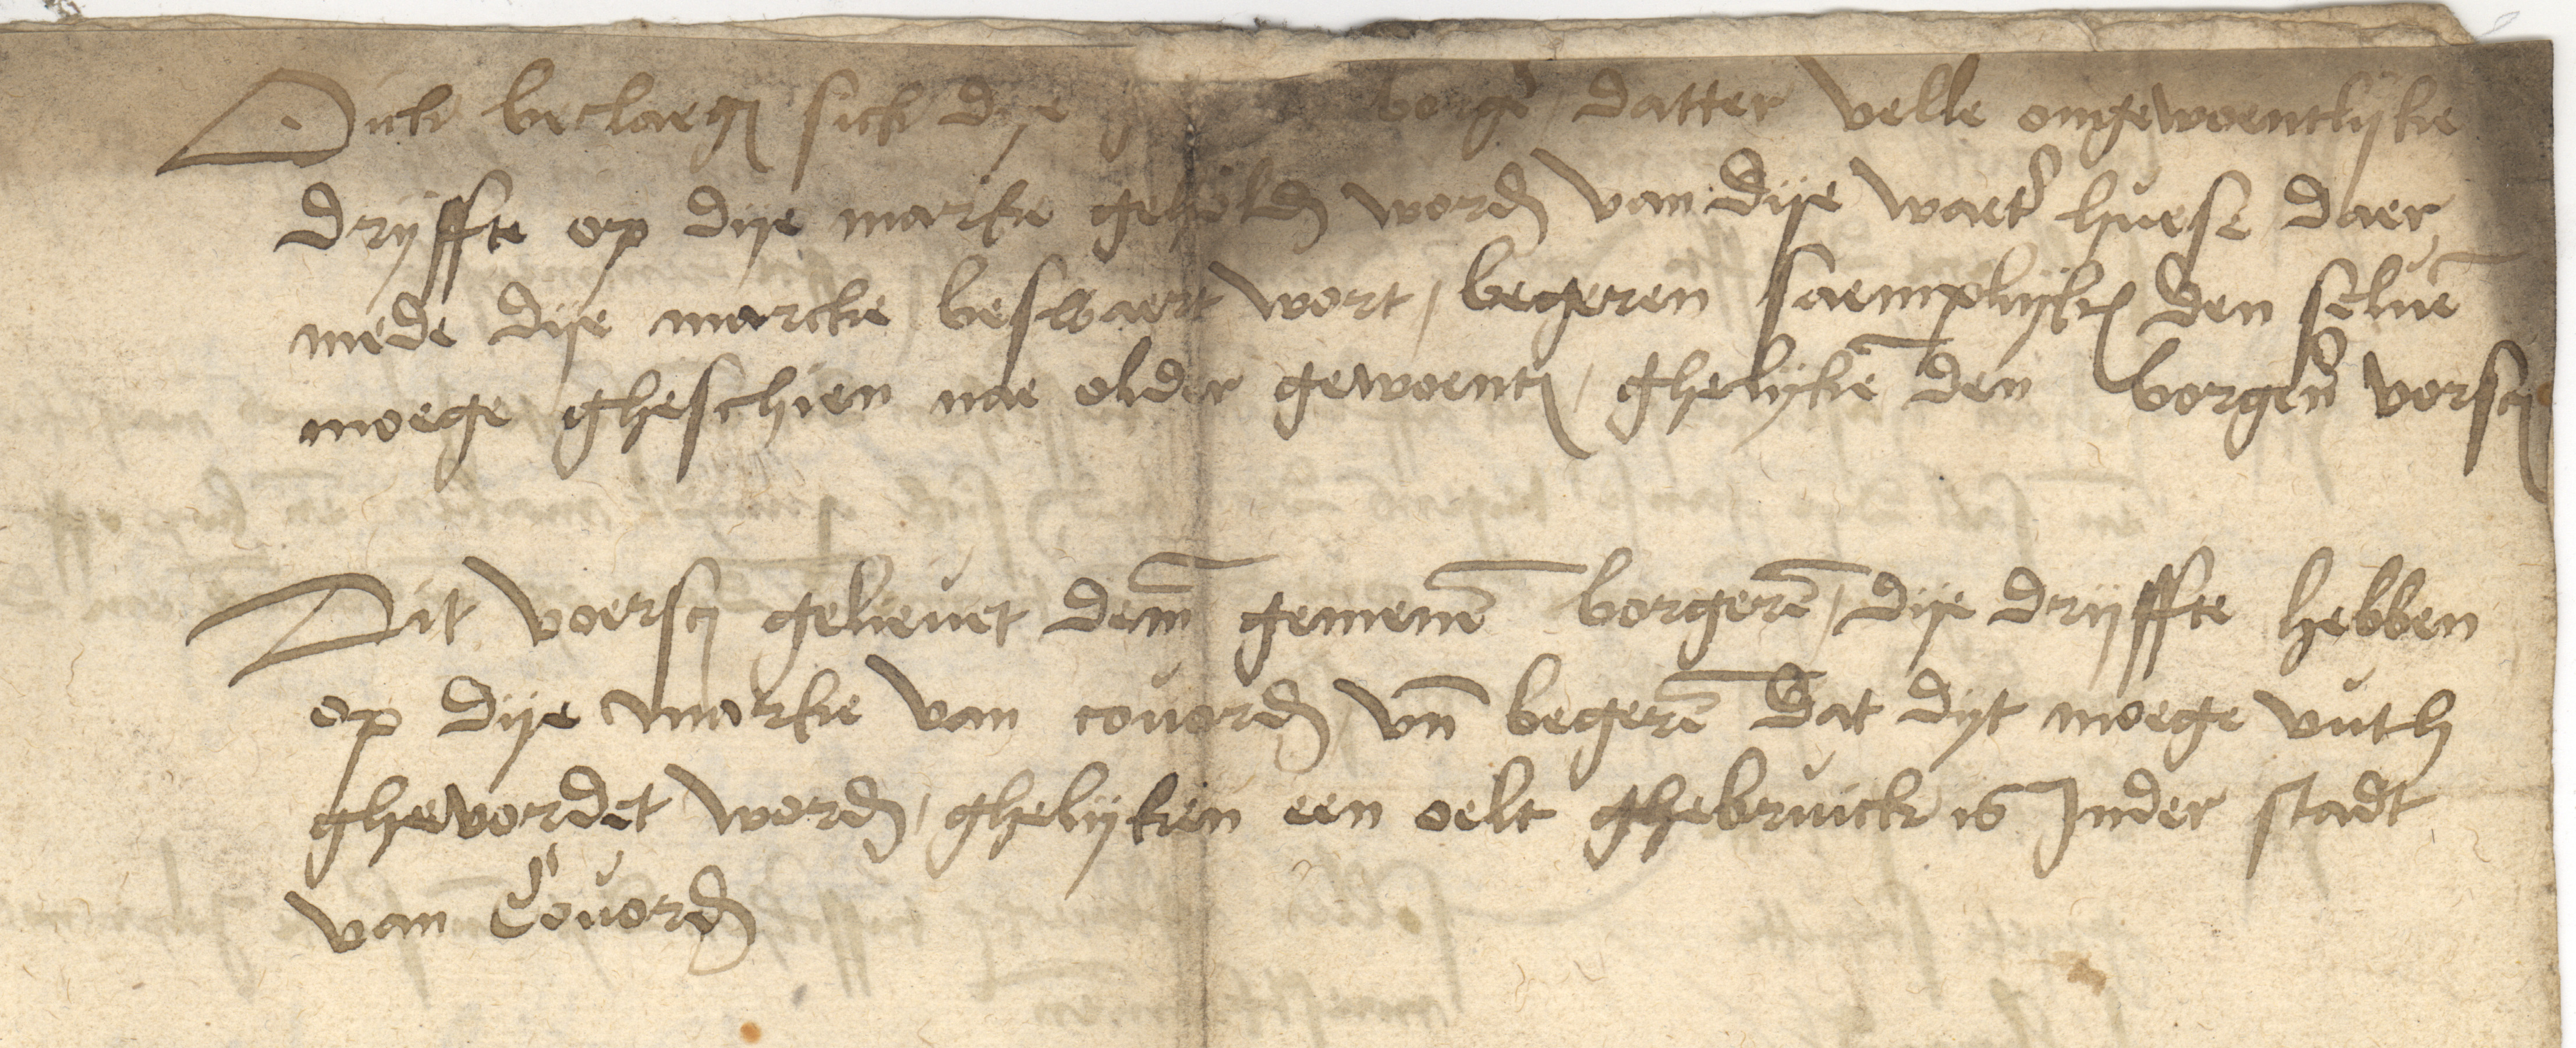 Dick beclaegen sick dye borger / datter velle ongewoentlijke
drijffte op dije marke geholden worden van dije waeter huese daer
mede dije marcke beswaert wort / begeren saemplijcken den seluen
moege gheschien nae older gewoenten / ghelijken den borgeren vorsc
Dit voersc gelieuet dem gemenen borgeren / dije drijffte hebben
op dije marke van couorden vnd begeren dat dijt moege vuth
ghevordet worden / ghelijken een oelt ghebruick is Inder stadt
van Couorden